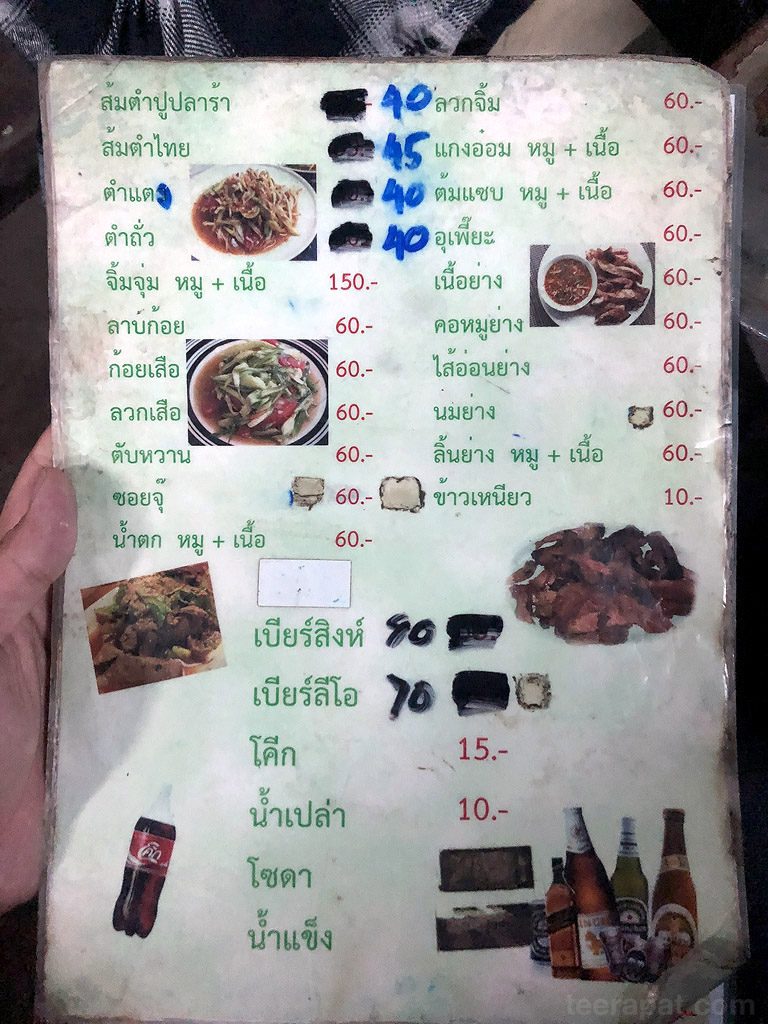 ส้มตำปูปลาร้า 40
ส้มตำไทย 45
ตำแตง 40
ตำถั่ว 40
จิ้มจุ่ม หมู + เนื้อ 150.-
ลาบก้อย 60.-
ก้อยเสือ 60.-
ลวกเสือ 60.-
ตับหวาน 60.-
ซอยจุ๊ 60.-
น้ำตก หมู + เนื้อ 60.-
ลวกจิ้ม 60.-
แกงอ๋อม หมู + เนื้อ 60.-
ต้มแซบ หมู + เนื้อ 60.-
อุเพี๊ยะ 60.-
เนื้อย่าง 60.-
คอหมูย่าง 60.-
ไส้อ่อนย่าง 60.-
นมย่าง 60.-
ลิ้นย่าง หมู + เนื้อ 60.-
ข้าวเหนียว 10.-
เบียร์สิงห์ 80
เบียร์ลีโอ 70
โค๊ก 15.-
น้ำเปล่า 10.-
โซดา
น้ำแข็ง
teeragat.com